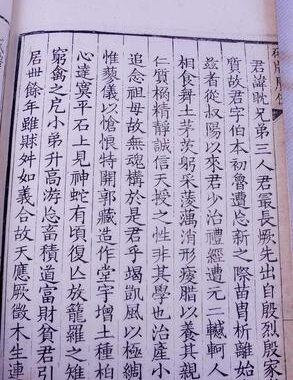 君諱眈兄弟三人君最長厥先出自殷烈殷家
質故君字伯本初魯遭亾新之際苗冑析離始
茲者從叔陽以來君少治禮經遭元二轗軻人
相食舞土茅茨躬采蓤藕消形瘦腊以養其親
仁質桷精靜誠信天授之性非其學也治產小
追念祖母故無魂構於是君乃竭凱風以惆
惟蓼儀以愴悢特開郭藏造作堂宇增土種柏
心達冥平石上見神蛇有頃復亾放籠羅之雉
窮禽之厄小弟升高游亾畜積道富財貧君引
居世餘年雖財舛如義合故天應厥徵木生連